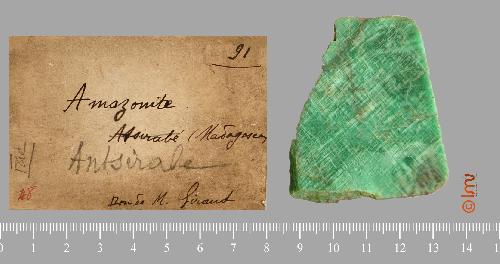 91
Amazonite
Atsirabé (Madagascar
Antsirabe
Don de M. Giraud
48
© lmv
0 1 2 3 4 5 6 7 8 9 10 11 12 13 14